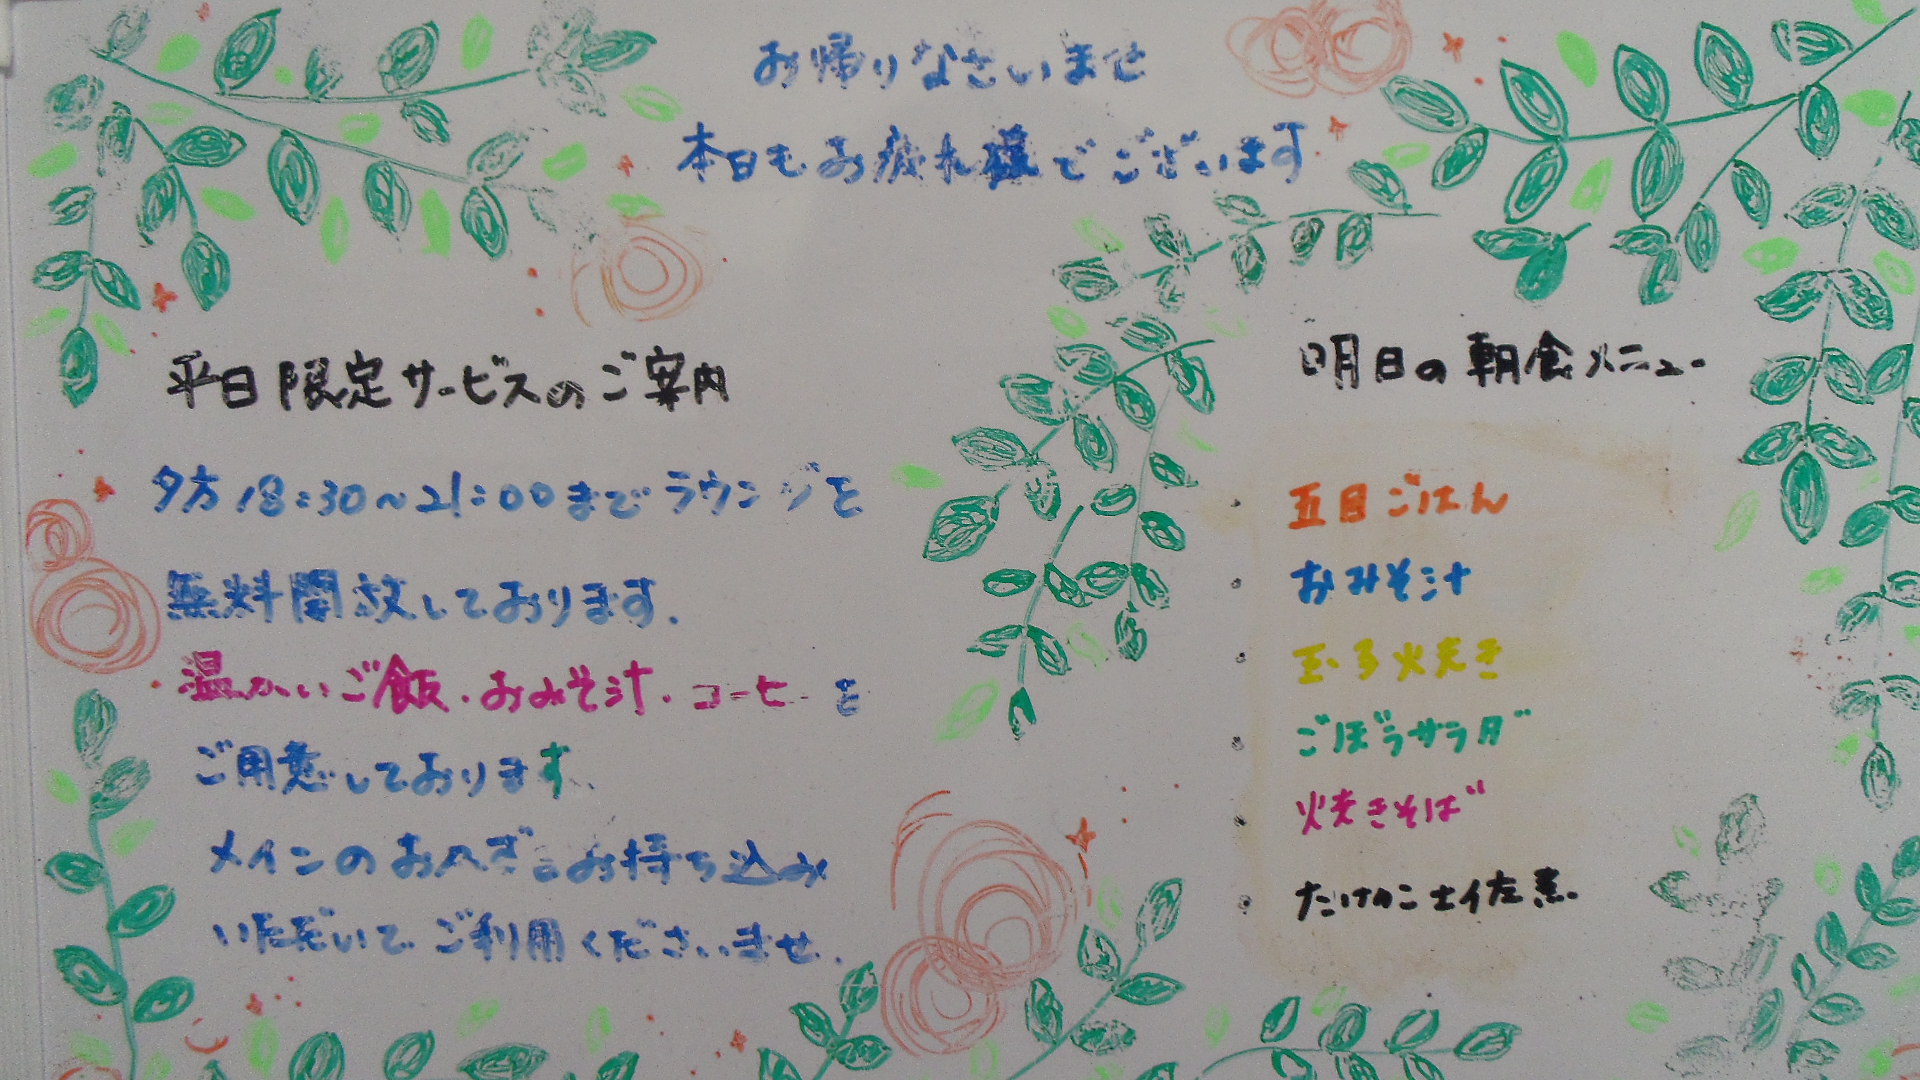 お帰りなさいませ
本日もお疲れ様でございます
平日限定サービスのご案内
夕方18:30～21:00までラウンジを
無料開放しております。
温かいご飯・おみそ汁・コーヒーを
ご用意しております。
メインのおかずをお持ち込み
いただいてご利用くださいませ。
明日の朝食メニュー
・五目ごはん
・おみそ汁
・玉子焼き
・ごぼうサラダ
・焼きそば
・たけのこ土佐煮